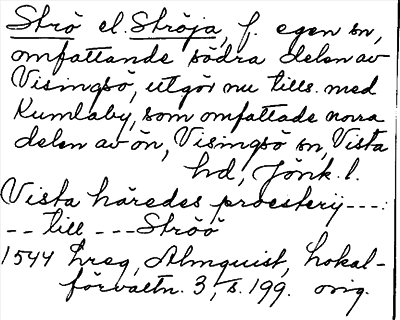 Strö el. Ströja, f. egen sn,
omfattande södra delen av
Visingsö, utgör nu tills. med
Kumlaby, som omfattade norra
delen av ön, Visingsö sn, Vista
hd, Jönk. l.
Vista häredes proesterij ---:
-- till --- Ströö
1544 hreg, Almquist, Lokal-
förvaltn. 3, s. 199. orig.